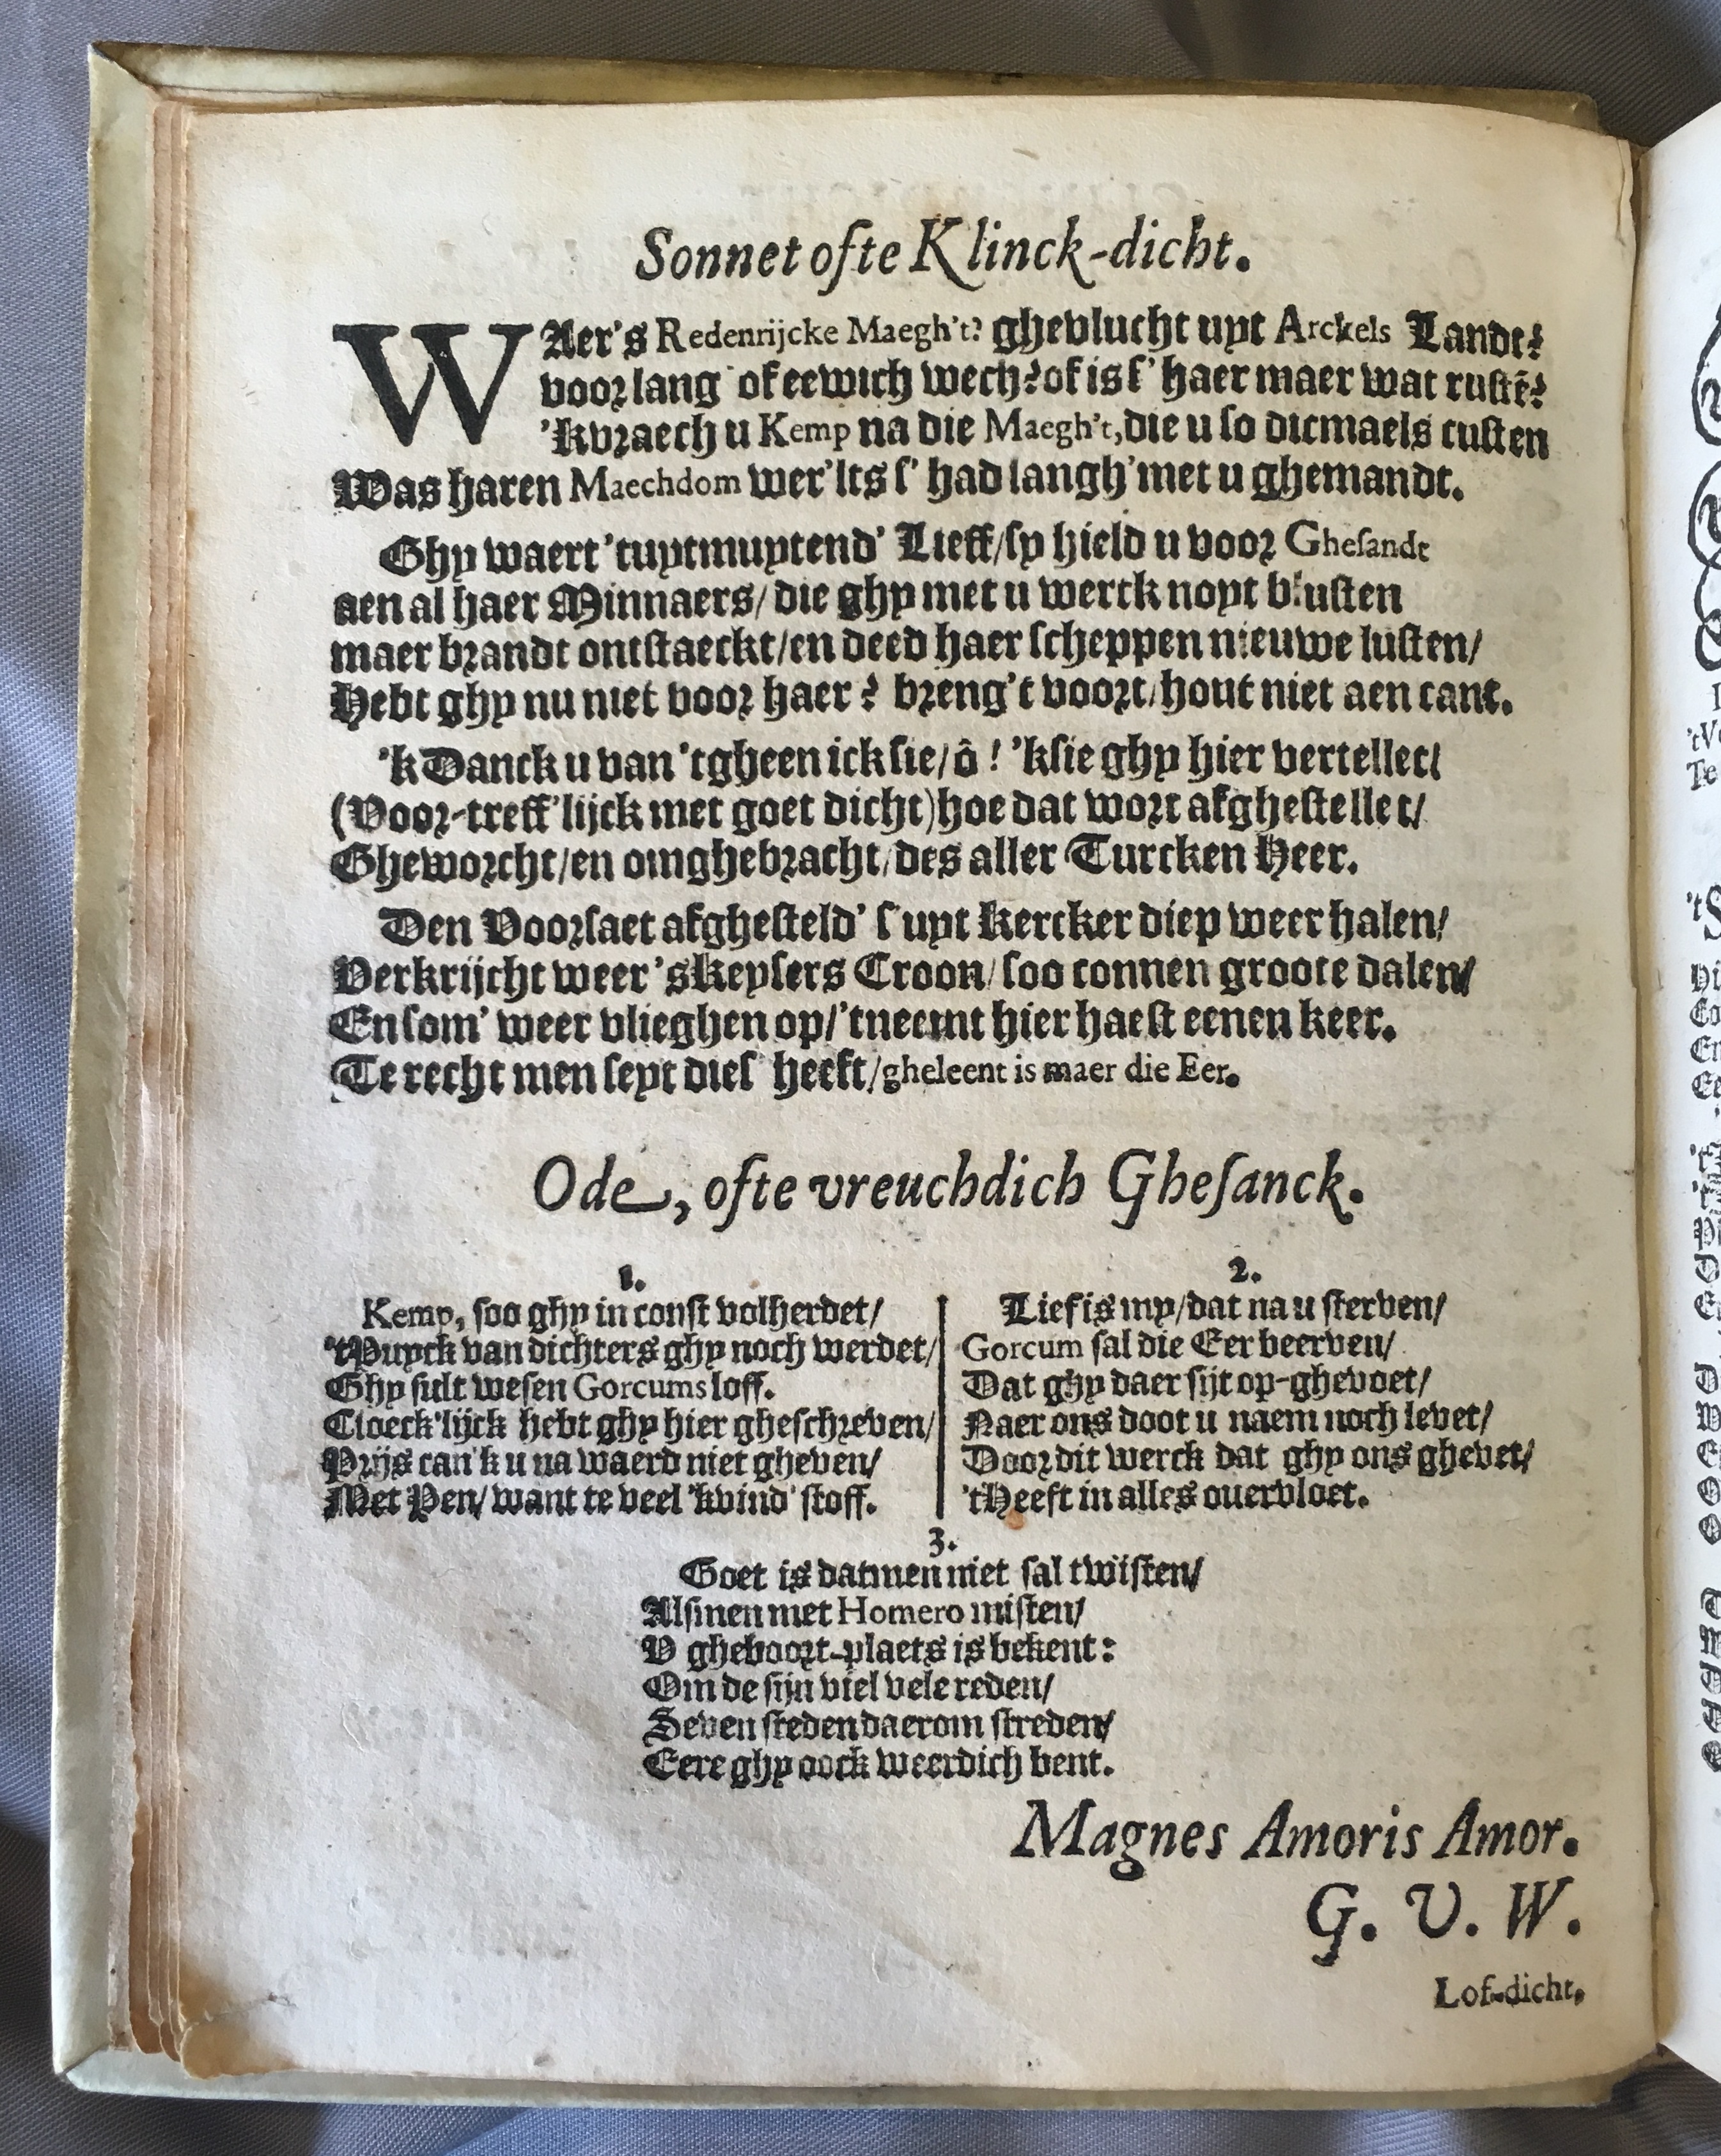 Sonnet ofte Klinck-dicht.
WAer's Redenrijcke Maegh't? ghevlucht uyt Arckels Landt?
voor lang' of eewich wech? of is s' haer maer wat rustē?
'k vraech u Kemp na die Maegh't, die u so dicmaels custen
Was haren Maechdom wer'lts s' had langh' met u ghemandt.
Ghy waert 'tuytmuytend' Lieff/ sy hield u voor Ghesandt
aen al haer Minnaers/ die ghy met u werck noyt blusten
maer brandt ontstaeckt/ en deed haer scheppen nieuwe lusten/
Hebt ghy nu niet voor haer? breng't voort/ hout niet aen cant.
'k Danck u van 'tgheen ick sie/ ô! 'k sie ghy hier vertellet/
(Voor-treff'lijck met goet dicht) hoe dat wort afghestellet/
Gheworcht/ en omghebracht/ des aller Turcken Heer.
Den Voorsaet afghesteld' s' uyt Kercker diep weer halen/
Verkrijcht weer 's Keysers Croon/ soo connen groote dalen/
En som' weer vlieghen op/ 'tneemt hier haest eenen keer.
Te recht men seyt dies' heeft/ gheleent is maer die Eer.
Ode, ofte vreuchdich Ghesanck.
1.
Kemp, soo ghy in const volherdet/
'tPuyck van dichters ghy noch werdet/
Ghy sult wesen Gorcums loff.
Cloeck'lijck hebt ghy hier gheschreven/
Prijs can 'k u na waerd niet gheven/
Met Pen/ want te veel 'k vind' stoff.
2.
Lief is my/ dat na u sterven/
Gorcum sal die Eer beerven/
Dat ghy daer sijt op-ghevoet/
Naer ons doot u naem noch levet/
Door dit werck dat ghy ons ghevet/
'tHeeft in alles overvloet.
3.
Goet is datmen niet sal twisten/
Alsmen met Homero misten/
V gheboort-plaets is bekent:
Om de sijn viel vele reden/
Seven steden daerom streden/
Eere ghy oock weerdich bent.
Magnes Amoris Amor.
G. V. W.
Lof-dicht.